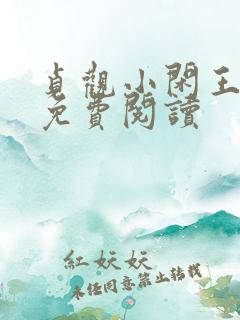 貞觀小閑王
免費閱讀
紅妖妖
未經同意禁止轉載